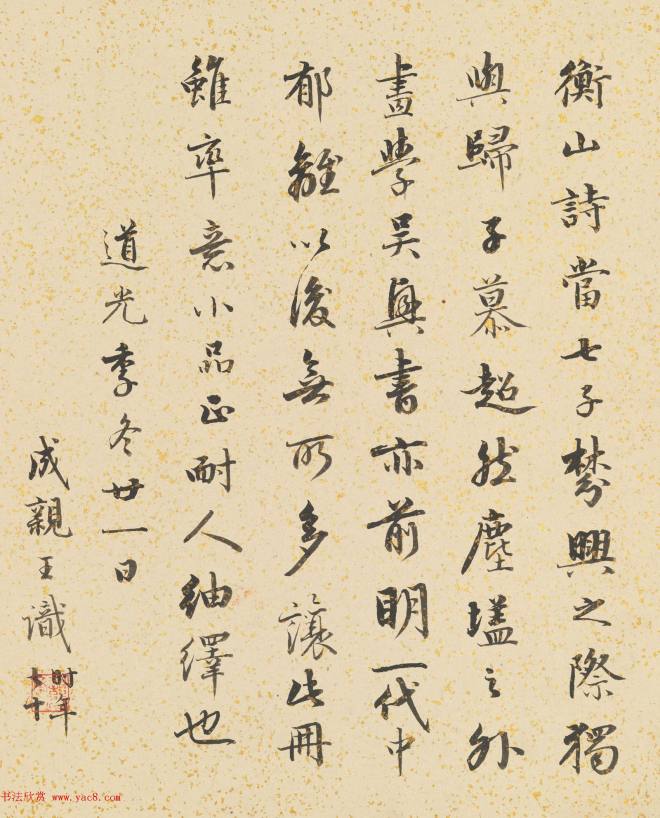 衡山詩當七子棼興之際獨
與歸子慕超然塵壒之外
畫學吳興書亦前明一代中
郁離以後無所多讓此冊
雖率意小品正耐人紬繹也
道光季冬廿一日
成親王識
时年
七十
书法欣赏 www.yac8.com